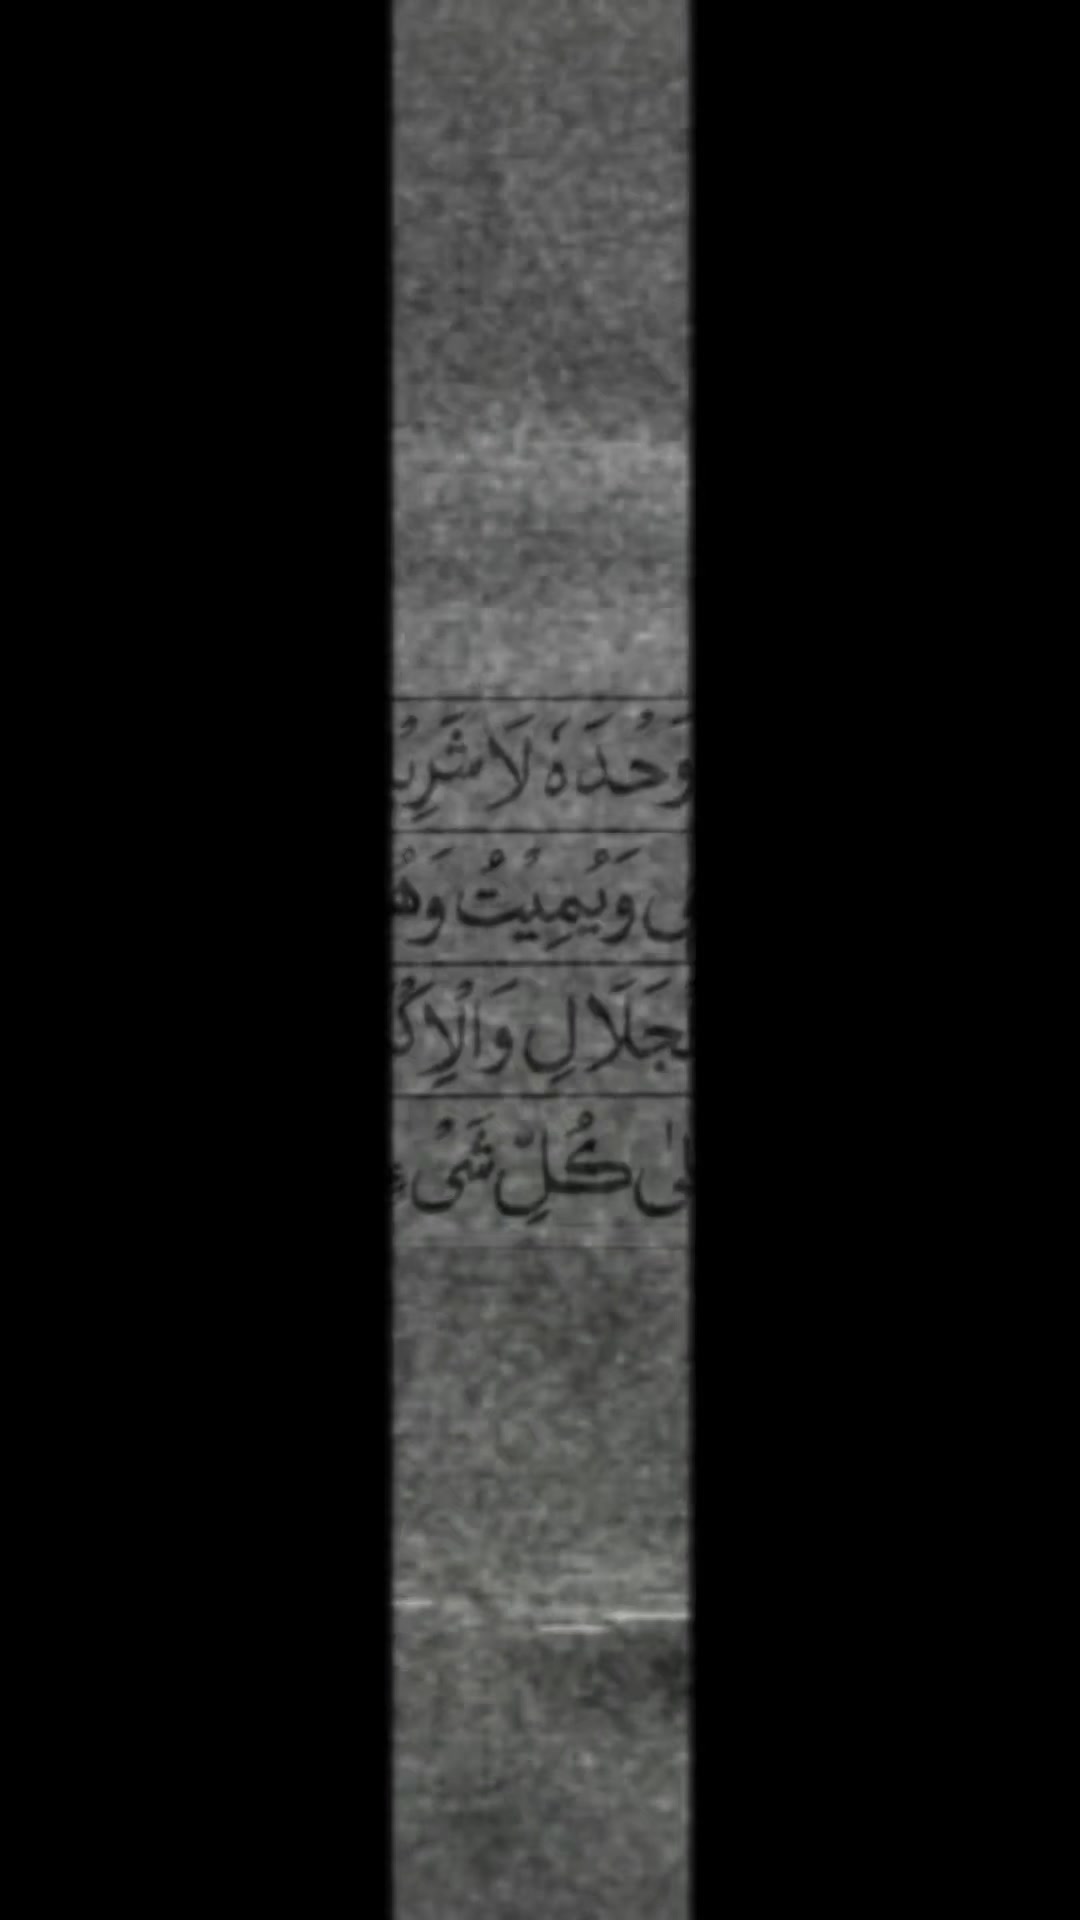 وَحْدَهٗ لَا شَرِيْ
وَيُمِيْتُ وَهُ
لْجَلَالِ وَالْاِكْ
كُلِّ شَيْءٍ